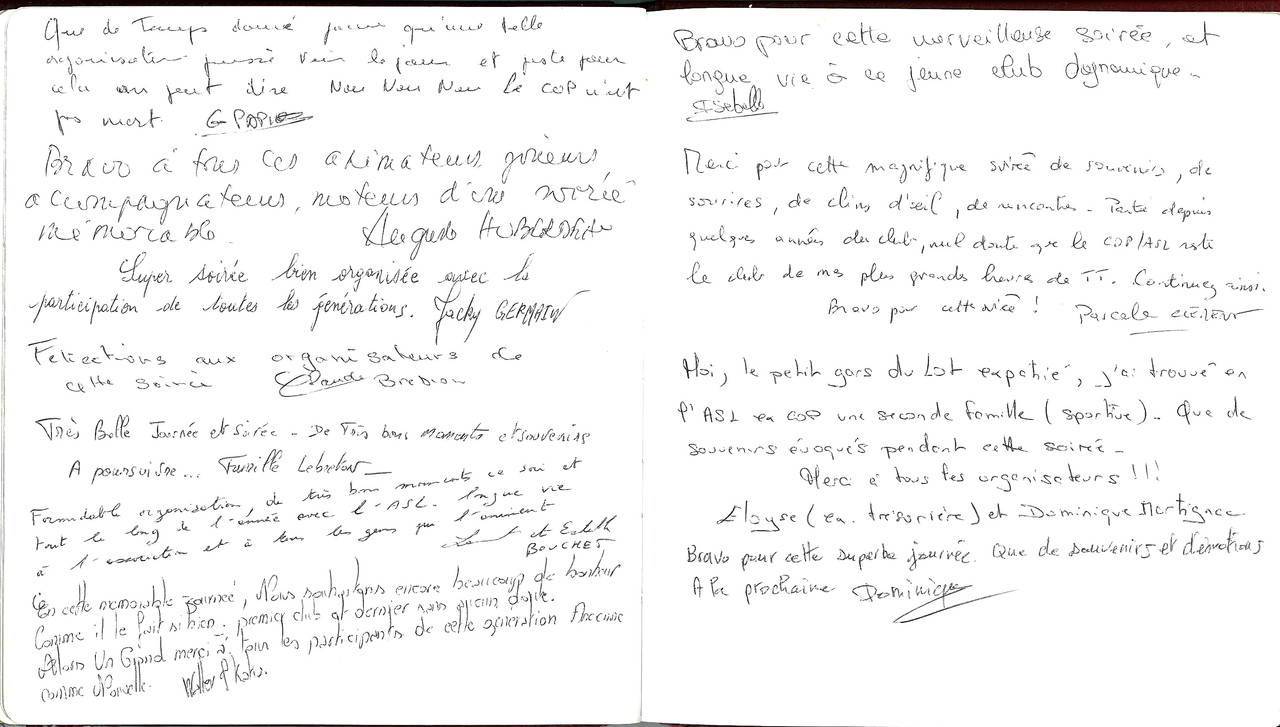 Que de Temps donné pour qu'une telle
organisation puisse voir le jour et juste pour
cela on peut dire Non Non Non Le COP n'est
pas mort.
Bravo à tous ces animateurs,
accompagnateurs, moteurs d'une soirée
mémorable.
Super soirée bien organisée avec la
participation de toutes les générations. Jacky GERMAIN
Félications aux organisateurs de
cette soirée Claude
Très Belle Journée et soirée - De Très bons moments et souvenirs
A poursuivre... Famille Lebreton
Formidable organisation, de très bon moments ce soir et
tout le long de l'année avec l'ASL. longue vie
à l'association et à tous les gens qui l'animent
et Edith
BOUCHET
En cette mémorable journée, Nous souhaitons encore beaucoup de bonheur
Comme il le fait si bien. premier club et dernier sans aucun doute.
Alors Un Grand merci à tous les participants de cette génération Ancienne
comme Nouvelle.
Bravo pour cette merveilleuse soirée, et
longue vie à ce jeune club dynamique.
Isabelle
Merci pour cette magnifique soirée de souvenirs, de
sourires, de clins d'œil, de rencontres - Partie depuis
quelques années du club, nul doute que le COP/ASL reste
le club de mes plus grandes heures de TT. Continuez ainsi.
Bravo pour cette soirée ! Pascale
Moi, le petit gars du Lot expatrié, j'ai trouvé en
l'ASL ex COP une seconde famille (sportive). Que de
souvenirs évoqués pendant cette soirée -
Merci à tous les organisateurs !!!
Eloyse (ex. trésorière) et Dominique Martignac
Bravo pour cette superbe journée. Que de souvenirs et d'émotions
A la prochaine Dominique